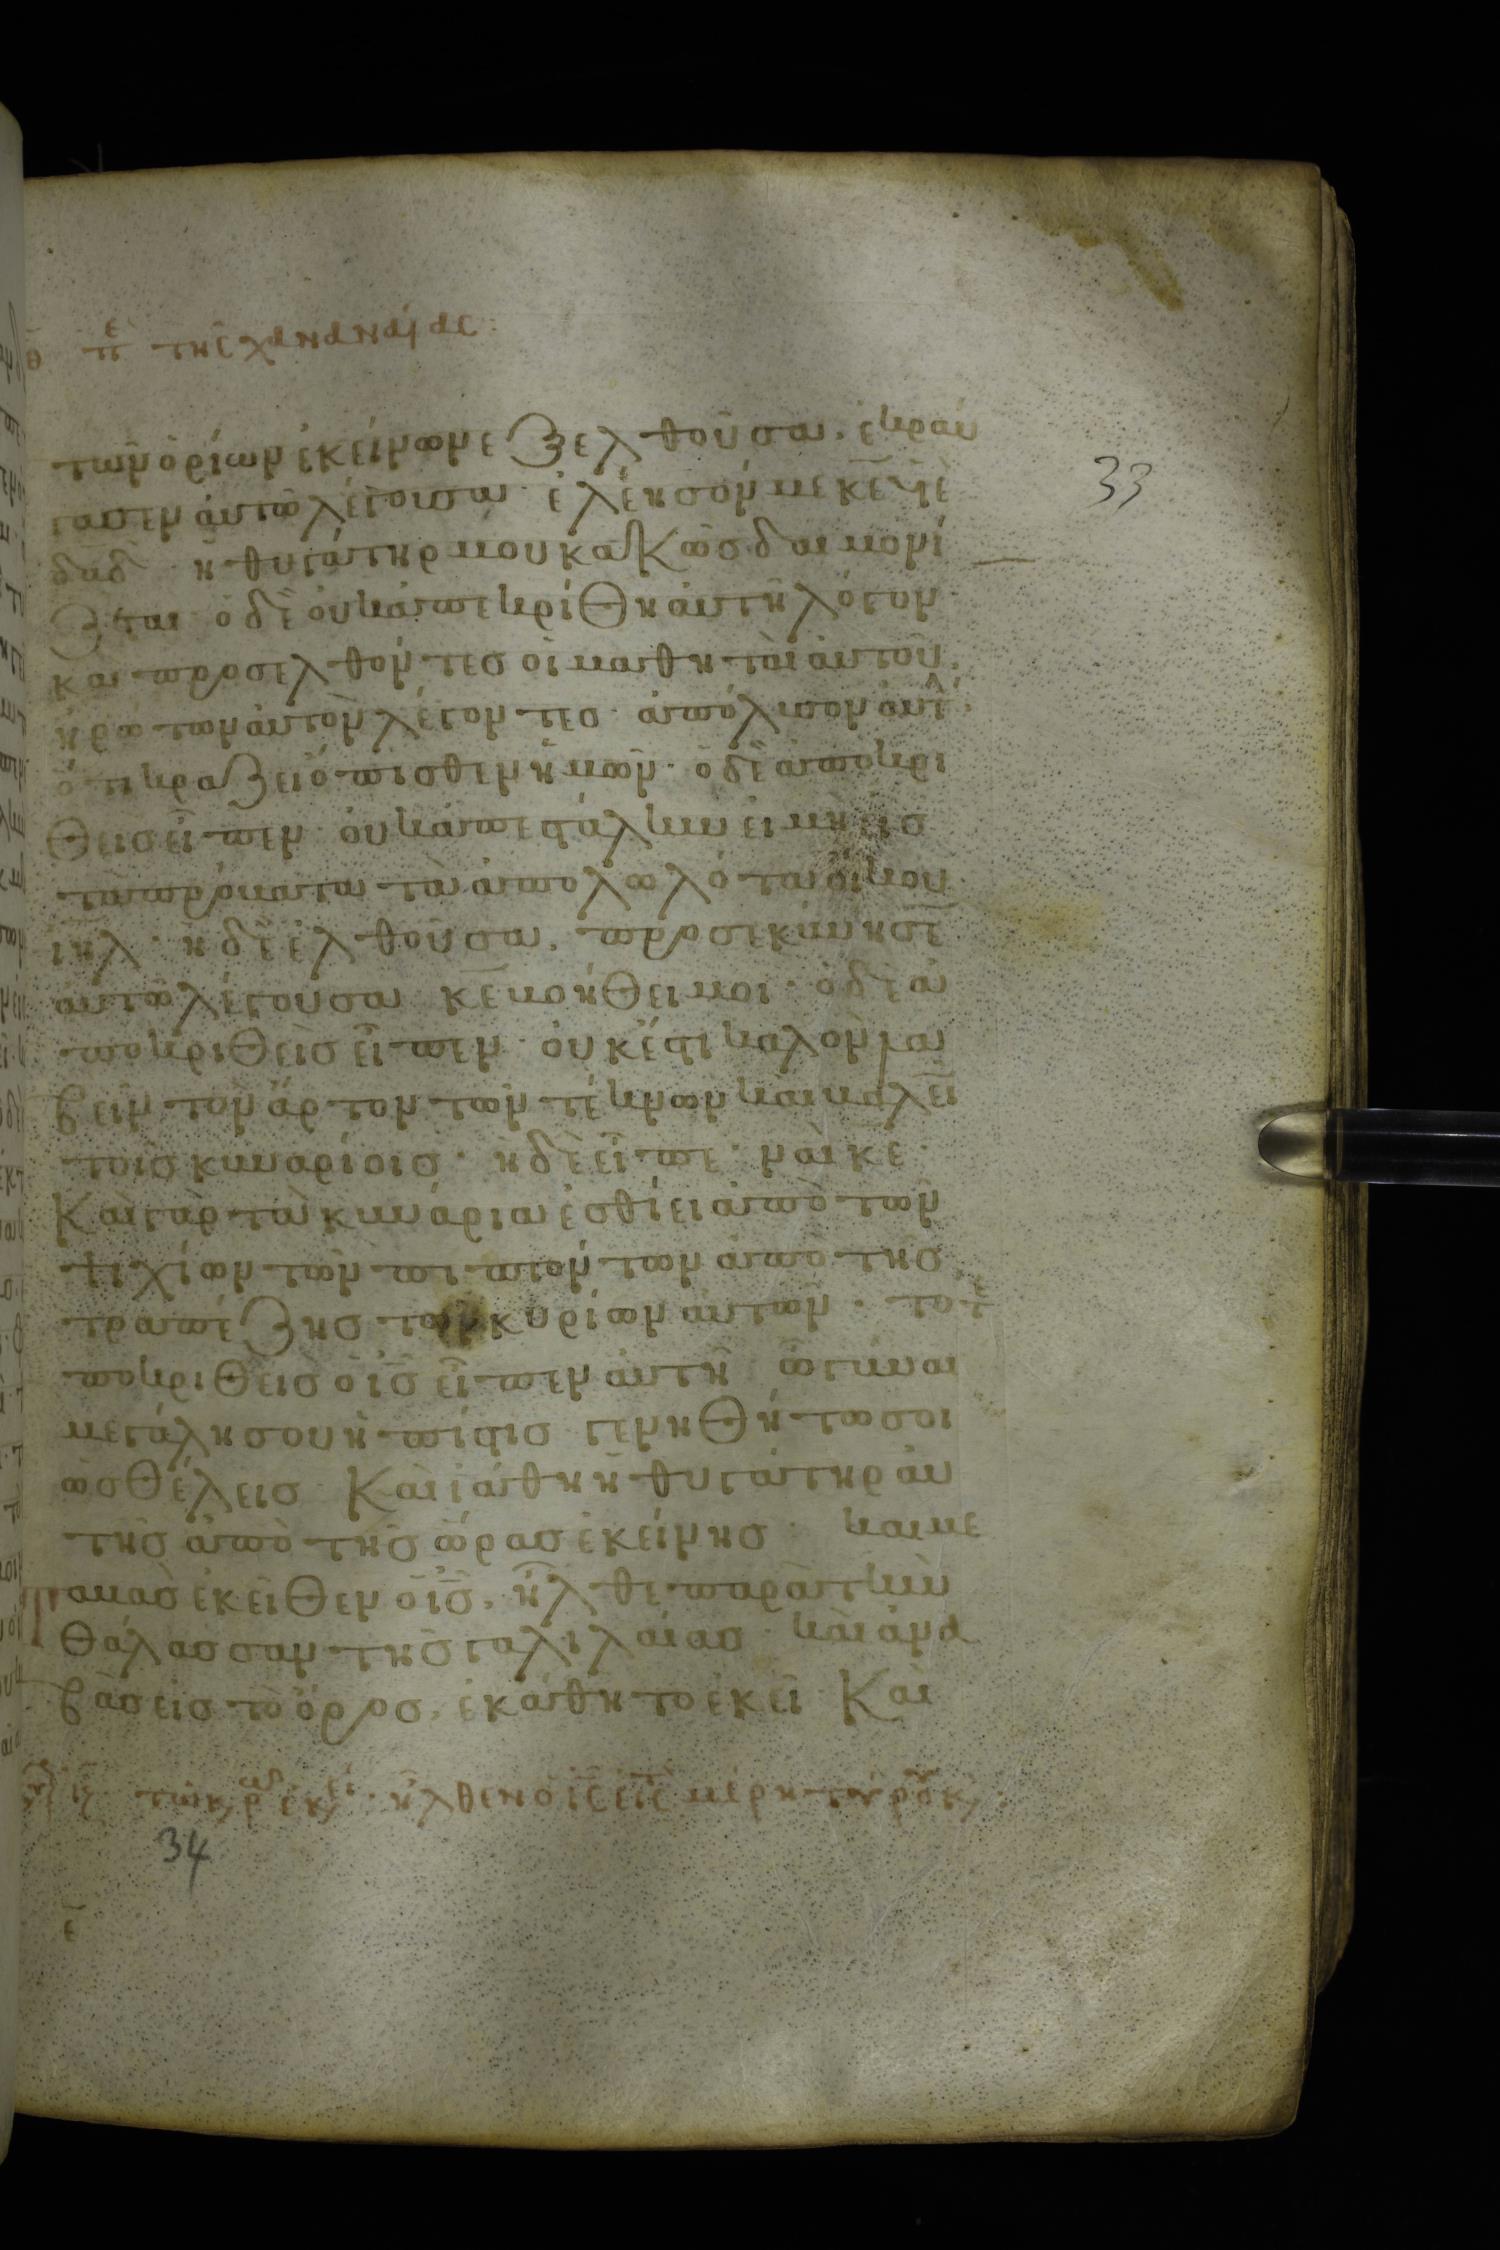 θ πε της χαναναίας:
των ὁρίων ἐκείνων ἐξελθοῦσα, ἐκραύ
γασεν αὐτῶ λέγουσα· ἐλέησόν με κε υἱὲ
δαδ· ἡ θυγάτηρ μου κακῶς δαιμονί
ζεται· ὁ δὲ οὐκ ἀπεκρίθη αὐτῆ λόγον·
33
και προσελθόντες οἱ μαθηται αὐτοῦ,
ἠρώτων αὐτὸν λέγοντες· ἀπόλυσον αὐτ
ὅτι κράζει ὄπισθεν ἡμῶν· ὁ δὲ ἀποκρι
θεις εἶπεν· οὐκ ἀπεστάλην εἰ μὴ εἰς
τὰ πρόβατα τὰ ἀπολωλότα οἴκου
ιηλ· ἡ δὲ ἐλθοῦσα, προσεκύνησε
αὐτῶ λέγουσα κε βοήθει μοι· ὁ δὲ ἀ
ποκριθεὶς εἶπεν· οὐκ ἔστι καλὸν λα
βεῖν τὸν ἄρτον τῶν τέκνων και βαλεῖ
τοις κυναρίοις· ἡ δὲ εἶπε· ναὶ κε·
Καὶ γὰρ τὰ κυνάρια ἐσθίει ἀπὸ τῶν
ψιχίων τῶν πιπτόντων ἀπὸ τῆς
τραπέζης τῶν κυρίων αὐτῶν· τοτε
ποκριθεις ὁ ις εἶπεν αὐτῆ ὦ γύναι
μεγάλη σου ἡ πίστις γενηθήτω σοι
ὡς θέλεις Καὶ ἰάθη ἡ θυγάτηρ αὐ
τῆς ἀπὸ τῆς ὥρας ἐκείνης· και με
ταβὰς ἐκεῖθεν ὁ ις, ἦλθε παρὰ τὴν
θάλασσαν τῆς γαλιλαίας· καὶ ἀνα
βὰς εἰς τὸ ὄρος, ἐκάθητο ἐκεῖ Καὶ
τῶ κρ ἐκ· ἦλθεν ὁ ις εἰς
34
ε